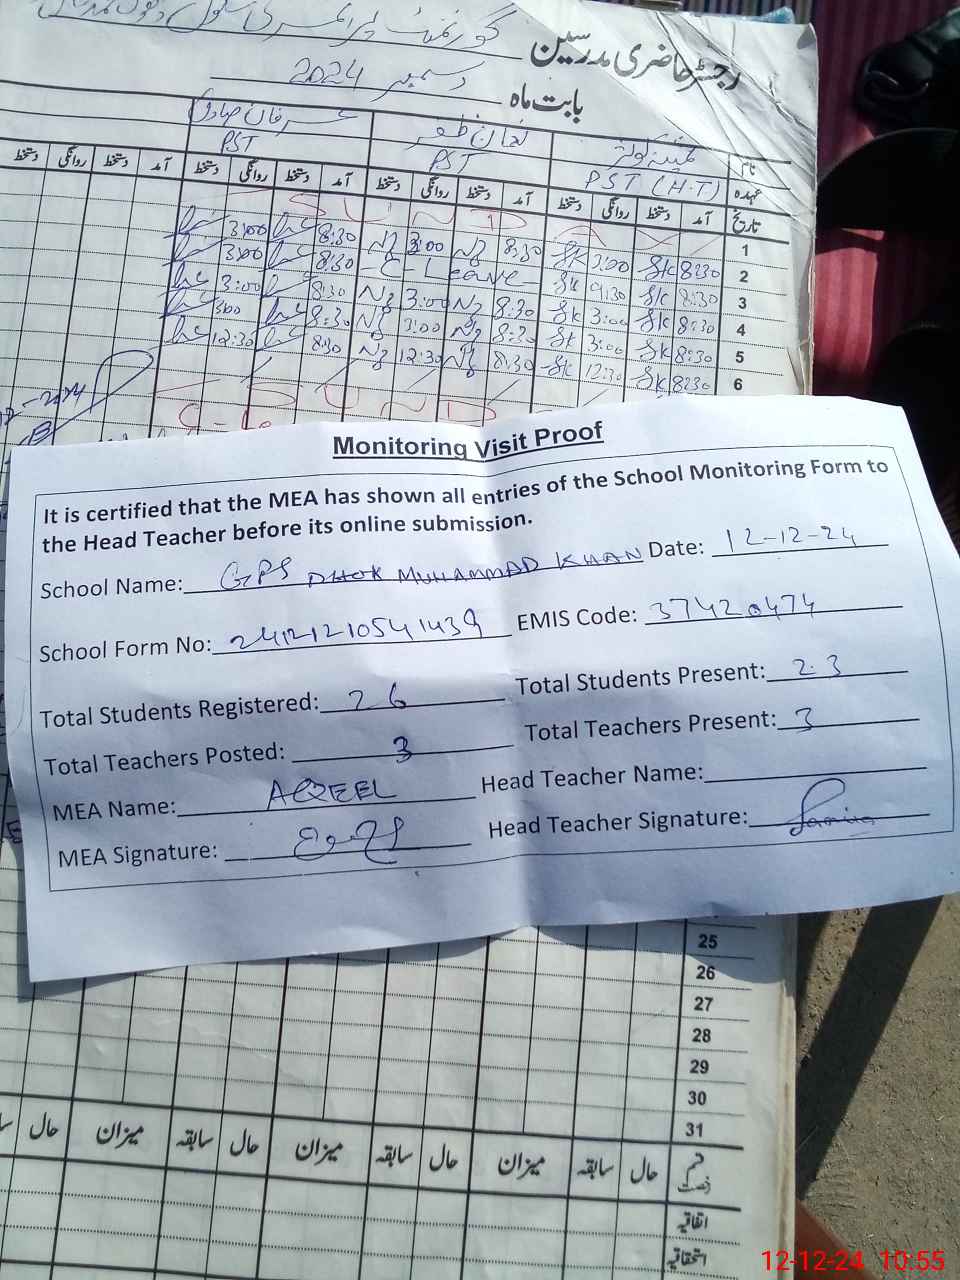 رجسٹر حاضری مدرسین
گورنمنٹ پرائمری سکول ڈھوک محمد
بابت ماہ دسمبر 2024
نام
عہدہ PST (H.T) PST PST
تاریخ آمد دستخط روانگی دستخط آمد دستخط روانگی دستخط آمد دستخط روانگی دستخط آمد دستخط روانگی دستخط
1 S U N D A Y
2 8:30 Sk 3:00 Sk 8:30 Nz 3:00 Nz 8:30 3:00
3 8:30 Sk 9:30 Sk -C-Leave- 8:30 3:00
4 8:30 Sk 3:00 Sk 8:30 Nz 3:00 Nz 8:30 3:00
5 8:30 Sk 3:00 Sk 8:30 Nz 3:00 Nz 8:30 3:00
6 8:30 Sk 12:30 Sk 8:30 Nz 12:30 Nz 8:30 12:30
S U N D
Monitoring Visit Proof
It is certified that the MEA has shown all entries of the School Monitoring Form to
the Head Teacher before its online submission.
School Name: GPS DHOK MUHAMMAD KHAN Date: 12-12-24
School Form No: 24121210541439 EMIS Code: 37420474
Total Students Registered: 26 Total Students Present: 23
Total Teachers Posted: 3 Total Teachers Present: 3
MEA Name: AQEEL Head Teacher Name:
MEA Signature: Head Teacher Signature: Samina
25
26
27
28
29
30
31
قسم رخصت حال سابقہ میزان حال سابقہ میزان حال سابقہ میزان حال
اتفاقیہ
استحقاقیہ
12-12-24 10:55